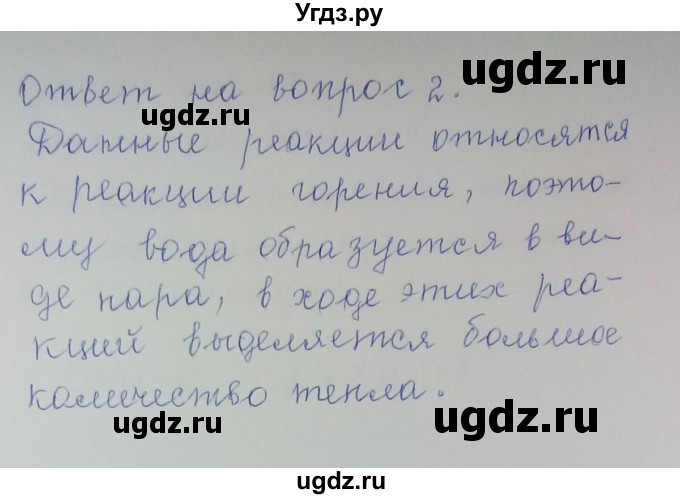 Угдз.ру
Ответ на вопрос 2. ugdz.ru
ugdz.ru
Данные реакции относятся
к реакции горения, поэто-
ugdz.ru ugdz.ru
му вода образуется в ви-
де пара, в ходе этих реа-
ugdz.ru ugdz.ru
кций выделяется большое
количество тепла.
ugdz.ru ugdz.ru
ugdz.ru